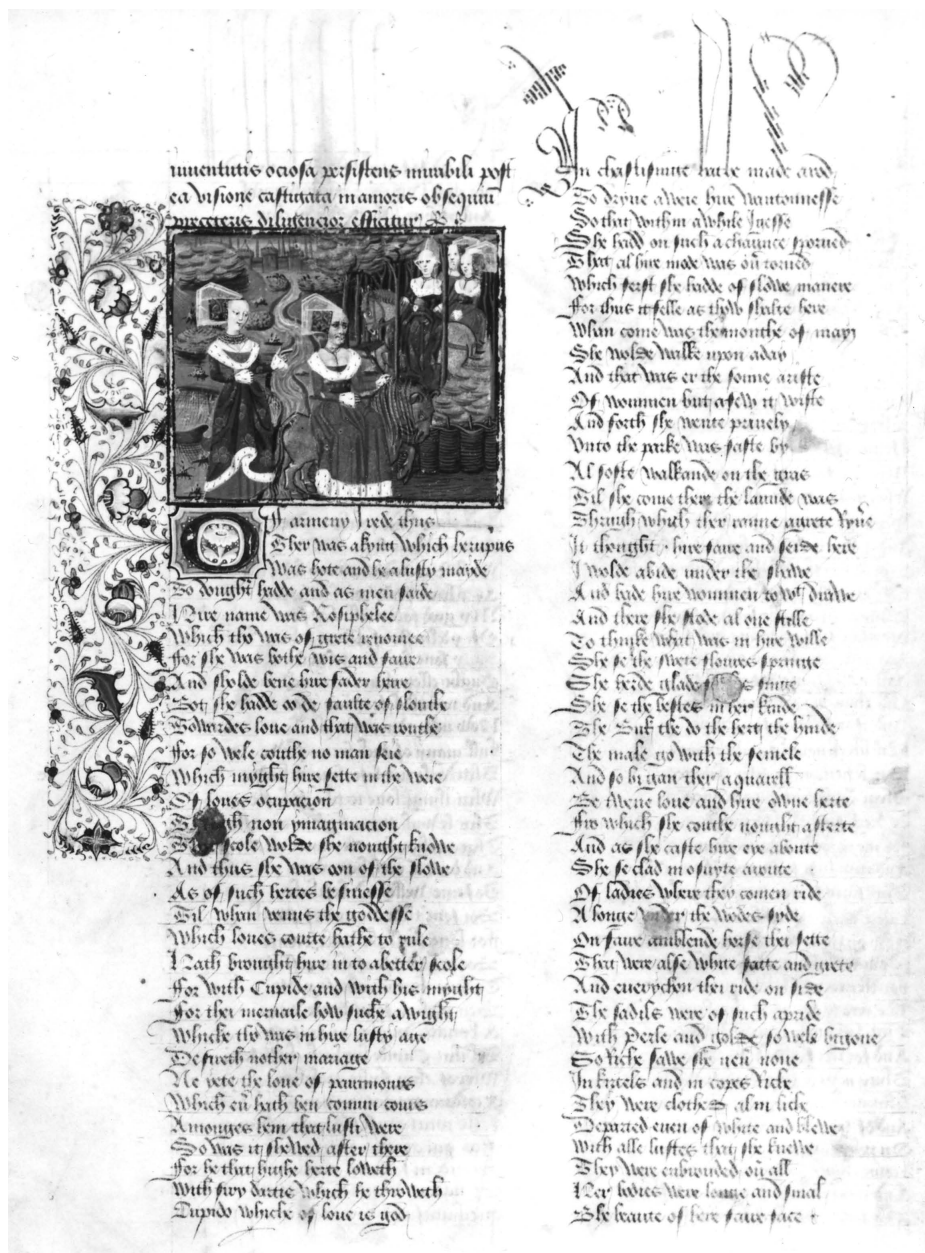 iuuentutis ociosa persistens mirabili post
ea visione castigata in amoris obsequium
pre ceteris diligencior efficitur
Of armeny I rede thus
Ther was a kyng which herupus
Was hote and he a lusty mayde
To doughter hadde and as men saide
Hire name was Rosiphelee
Which tho was of grete renomee
For she was bothe wis and faire
And sholde bene hire fader heire
Bot she hadde o de faulte of slouthe
Towardes loue and that was couthe
For so wele couthe no man seie
Which myght hire sette in the weie
Of loues ocupacion
non ymaginacion
scole wolde she nought knowe
And thus she was oon of the slowe
As of such hertes besinesse
Til whan venus the goddesse
Which loues courte hathe to rule
Hath brought hire in to a better scole
For with Cupide and with his myght
For thei merueile how suche a wight
Whiche tho was in hire lusty age
Desireth nother mariage
Ne yete the loue of paramoures
Which euer hath ben comun cours
Amonges hem that lusti were
So was it shewed after there
For he that highe herte loweth
With firy dartis which he throweth
Cupido whiche of loue is god
In chastisinge hathe made a rod
To dryue awere hire wantonnesse
So that with in a while I gesse
She hadd on such a chaunce sporned
That al hire mode was ouer torned
Which ferst she hadde of slowe manere
For thus it felle as thow shalte here
Whan come was the monthe of may
She wolde walke upon a day
And that was er the sonne ariste
Of wommen but a few it wiste
And forth she wente priuely
Vnto the parke was faste by
Al softe walkande on the gras
Til she come there the launde was
Thrugh which ther ranne a grete ryuer
It thought hire faire and seide here
I wolde abide under the shawe
And bade hire wommen to withdrawe
And there she stode al one stille
To thinke what was in hire wille
She se the swete floures springe
She herde glade singe
She se the bestes in her kinde
The Buk the do the hert the hinde
The male go with the femele
And so bigan ther a quarell
Be twene loue and hire owne herte
Fro which she couthe nought asterte
And as she caste hire eye aboute
She se clad in o suyte a route
Of ladies where they comen ride
A longe vnder the wodes syde
On faire amblende horse thei sette
That were alse white fatte and grete
And euerychon thei ride on side
The sadils were of such a pride
With Perle and golde so wele bigone
So riche sawe she neuer none
In kirtels and in copes riche
They were clothed al in liche
Departed euen of white and blewe
With alle lustes that she knewe
They were enbrouded ouer all
Her bodies were longe and smal
The beaute of here faire face